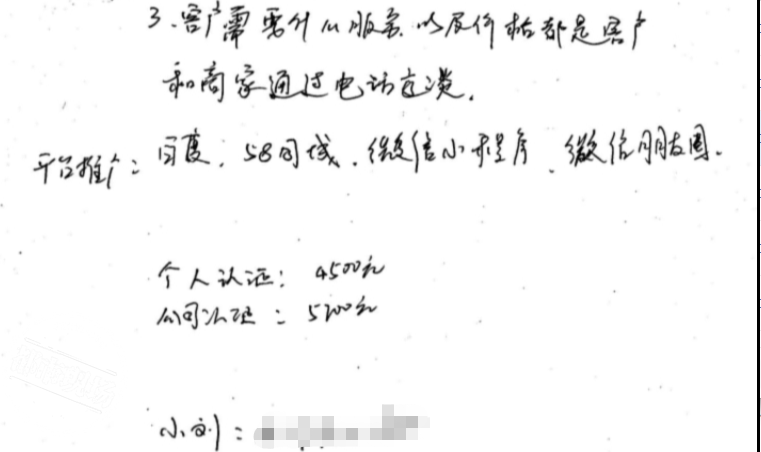 3.客户需要什么服务以及价格都是客户
和商家通过电话直谈.
平台推广:百度.58同城.微信小程序.微信朋友圈.
个人认证:4500元
公司认证:5200元
小刘: